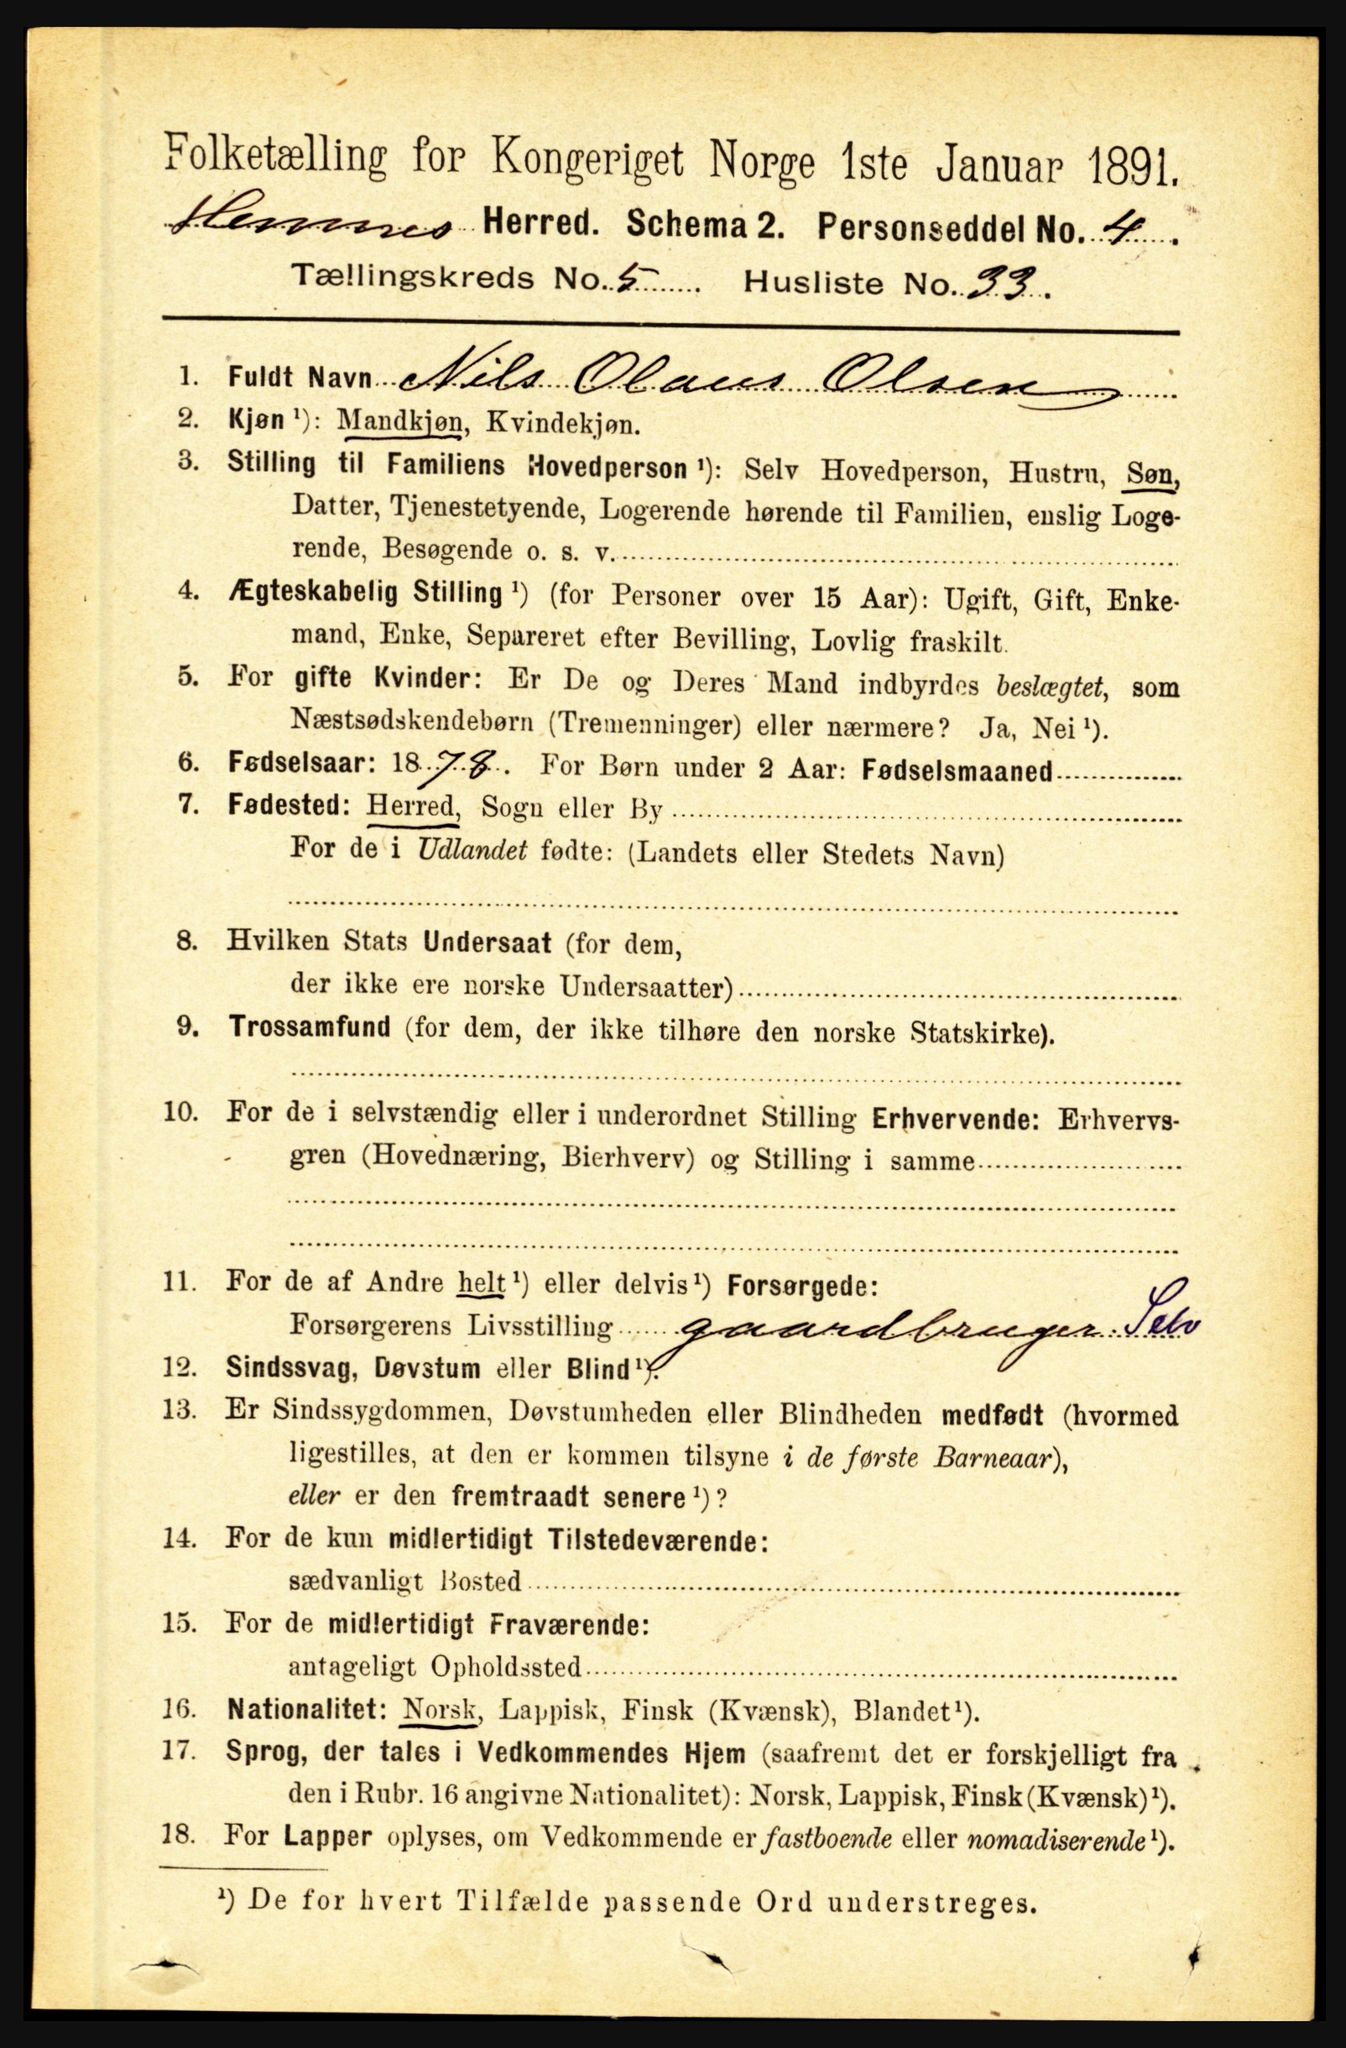 Folketælling for Kongeriget Norge 1ste Januar 1891.
Hemnes Herred. Schema 2. Personseddel No. 4.
Tællingskreds No. 5. Husliste No. 33.
1. Fuldt Navn Nils Olaus Olsen
2. Kjøn¹): Mandkjøn, Kvindekjøn.
3. Stilling til Familiens Hovedperson¹): Selv Hovedperson, Hustru, Søn,
Datter, Tjenestetyende, Logerende hørende til Familien, enslig Loge-
rende, Besøgende o. s. v.
4. Ægteskabelig Stilling¹) (for Personer over 15 Aar): Ugift, Gift, Enke-
mand, Enke, Separeret efter Bevilling, Lovlig fraskilt.
5. For gifte Kvinder: Er De og Deres Mand indbyrdes beslægtet, som
Næstsødskendebørn (Tremenninger) eller nærmere? Ja, Nei¹).
6. Fødselsaar: 1878. For Børn under 2 Aar: Fødselsmaaned
7. Fødested: Herred, Sogn eller By
For de i Udlandet fødte: (Landets eller Stedets Navn)
8. Hvilken Stats Undersaat (for dem,
der ikke ere norske Undersaatter)
9. Trossamfund (for dem, der ikke tilhøre den norske Statskirke).
10. For de i selvstændig eller i underordnet Stilling Erhvervende: Erhvervs-
gren (Hovednæring, Bierhverv) og Stilling i samme
11. For de af Andre helt¹) eller delvis¹) Forsørgede:
Forsørgerens Livsstilling gaardbruger Selv
12. Sindssvag, Døvstum eller Blind¹).
13. Er Sindssygdommen, Døvstumheden eller Blindheden medfødt (hvormed
ligestilles, at den er kommen tilsyne i de første Barneaar),
eller er den fremtraadt senere¹)?
14. For de kun midlertidigt Tilstedeværende:
sædvanligt Bosted
15. For de midlertidigt Fraværende:
antageligt Opholdssted
16. Nationalitet: Norsk, Lappisk, Finsk (Kvænsk), Blandet¹).
17. Sprog, der tales i Vedkommendes Hjem (saafremt det er forskjelligt fra
den i Rubr. 16 angivne Nationalitet): Norsk, Lappisk, Finsk (Kvænsk)¹).
18. For Lapper oplyses, om Vedkommende er fastboende eller nomadiserende¹).
¹) De for hvert Tilfælde passende Ord understreges.